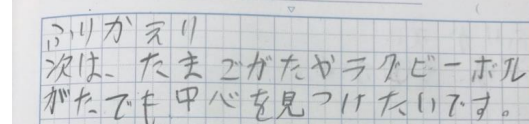 ふりかえり
次は、たまごがたやラグビーボール
がたでも中心を見つけたいです。